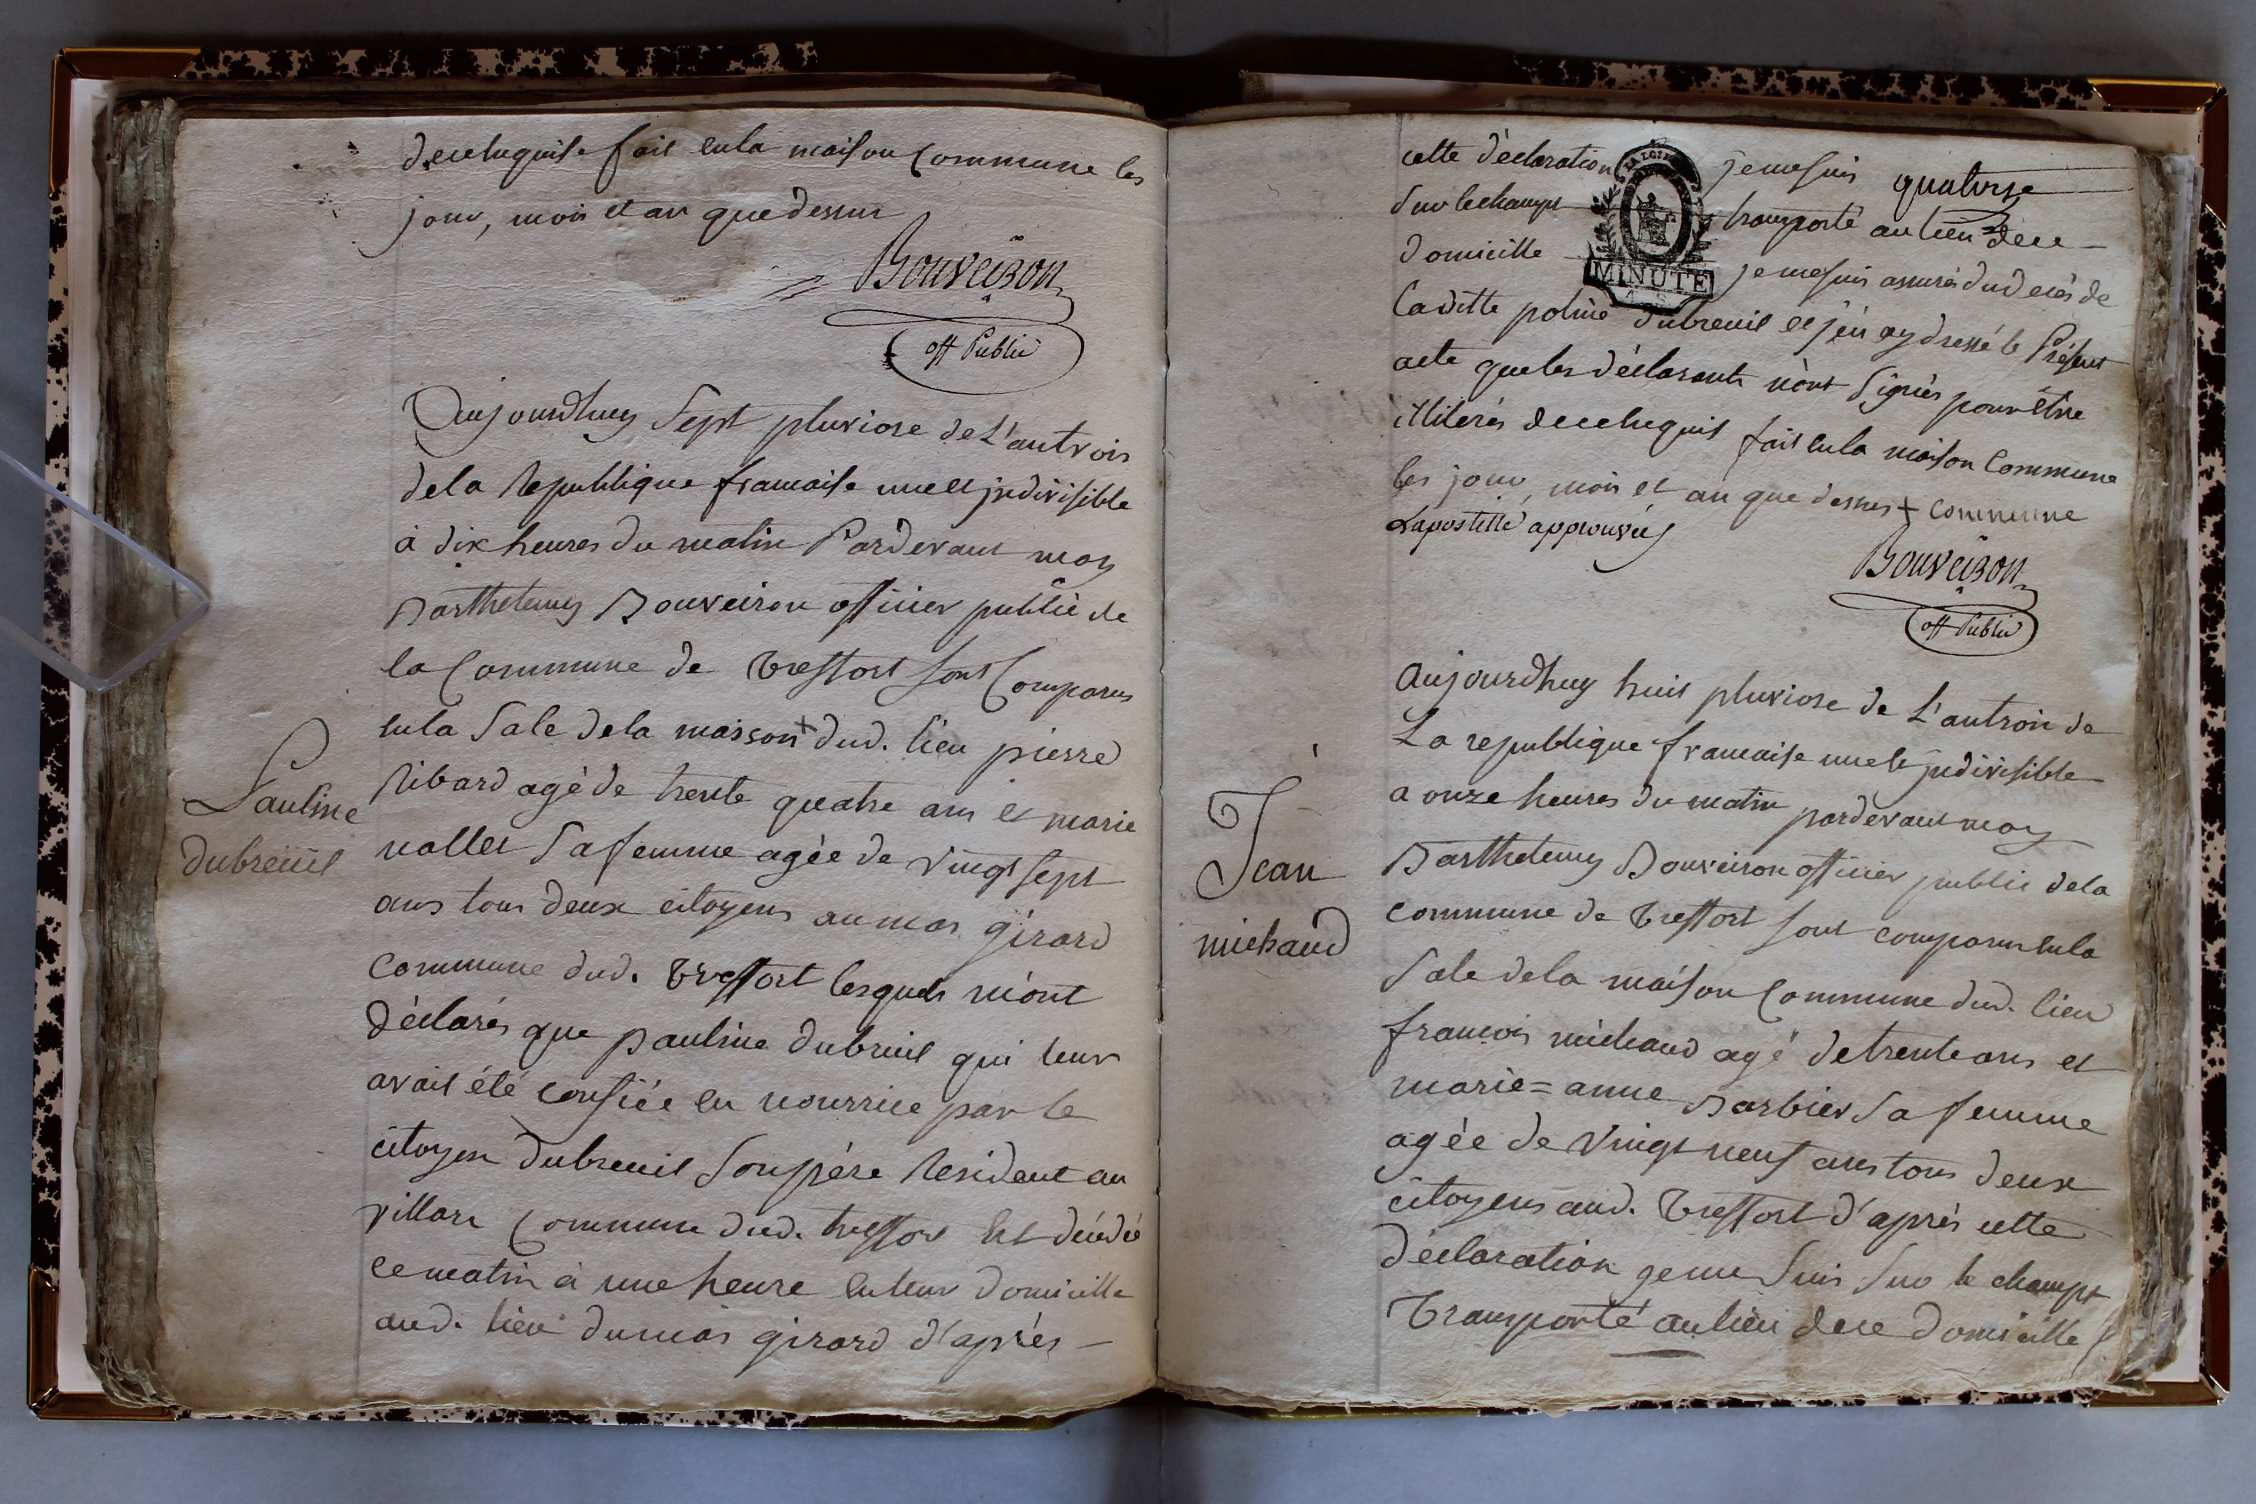 de ce luquis. fait en la maison Commune les
jour, mois et an que dessus
Bouveiron
off Public
Aujourdhuy Sept pluviose de L'an trois
de la Republique francaise une et jndivisible
à dix heures du matin Pardevant moy
Barthelemy Bouveiron officier public de
la Commune de Treffort sont Comparus
en la Sale de la maison + dud. lieu pierre
Ribard agé de trente quatre ans et marie
vallet Sa femme agée de vingt sept
ans tous deux citoyens au mas girard
Commune dud. Treffort lesquels m'ont
déclarés que pauline dubreuil qui leur
avait été confiée en nourrice par le
citoyen dubreuil Son père Resident au
villars Commune dud. treffort Est décédée
ce matin à une heure en leur domicille
aud. lieu du mas girard d'après
Pauline
dubreuil
quatorze
cette déclaration je me suis
Sur le champs transporté au lieu de ce
domicille je me suis assurés du décès de
LA LOI
MINUTE
la ditte poline dubreuil et j'en ay dressé le Présent
acte que les déclarants n'ont Signés pour être
illiterés de ce luquis fait en la maison Commune
les jour, mois et an que dessus + commune
L'apostille approuvée
Bouveiron
off Public
Aujourdhuy huit pluviose de L'an trois de
La republique francaise une et jndivisible
a onze heures du matin pardevant moy
Barthelemy Bouveiron officier public de la
Commune de Treffort sont comparus en la
Sale de la maison Commune dud. lieu
francois michaud agé de trente ans et
marie=anne Barbier Sa femme
agée de vingt neuf ans tous deux
citoyens aud. Treffort d'après cette
déclaration je me Suis Sur le champs
Transporté au lieu de ce domicille
Jean
michaud